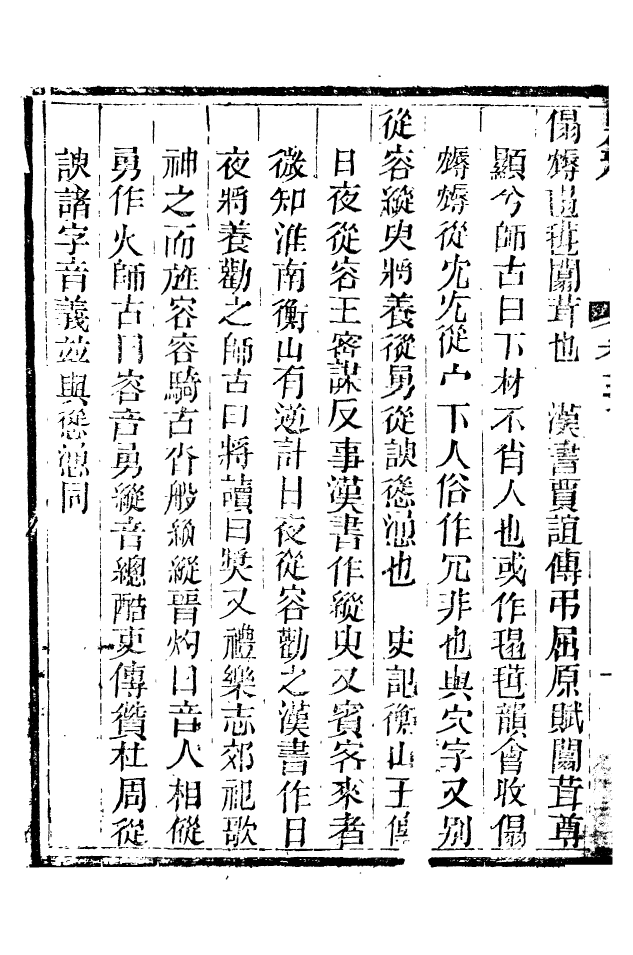 傝𣯩𦐇毾闒茸也　漢書賈誼傳弔屈原賦闒茸尊
顯兮師古曰下材不肖人也或作毾㲪韻會收傝
㒓從宂宂從宀下人俗作冗非也與穴字又別
從容縱臾將養從勇從諛慫恿也　史記衡山王傳
日夜從容王密謀反事漢書作縱臾又賓客來者
微知淮南衡山有逆計日夜從容勸之漢書作日
夜將養勸之師古曰將讀曰奬又禮樂志郊祀歌
神之而旌容容騎沓沓般縱縱晉灼曰音人相從
勇作火師古曰容音勇縱音總酷吏傳贊杜周從
諛諸字音義竝與慫恿同